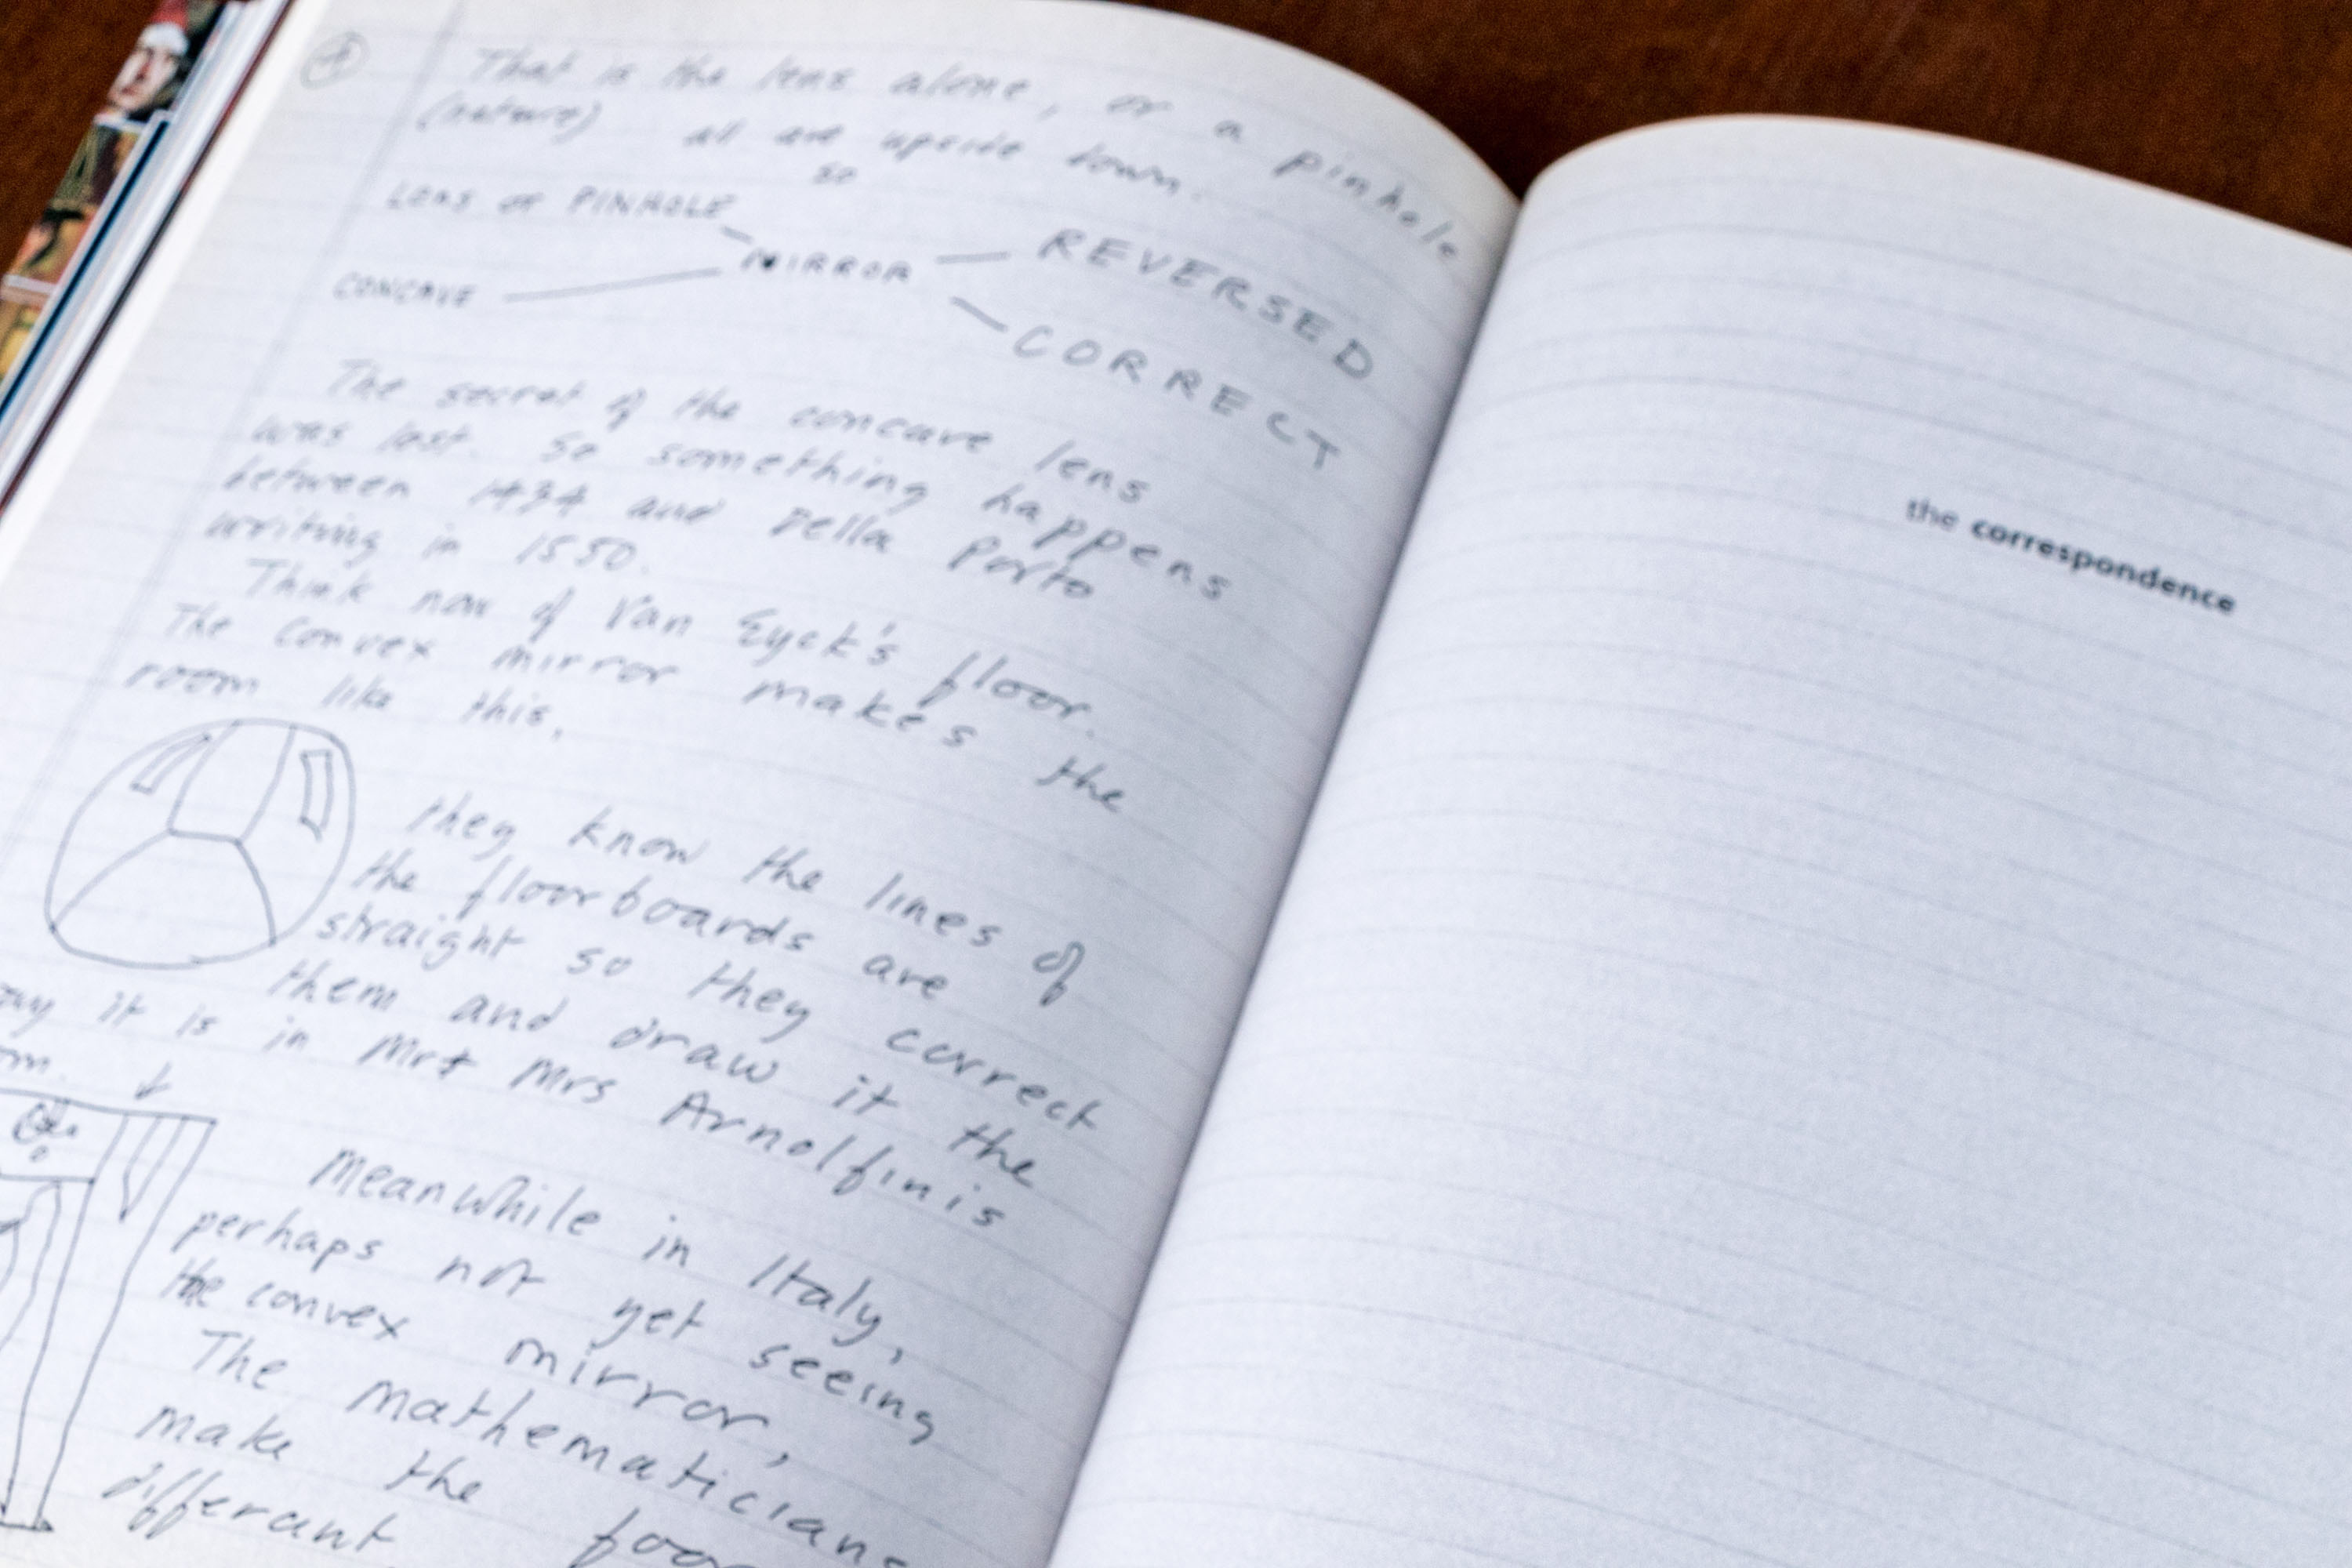 ④
That is the lens alone, or a pinhole
(nature) all are upside down.
so
LENS or PINHOLE
MIRROR
REVERSED
CONCAVE
CORRECT
The secret of the concave lens
was lost. So something happens
between 1434 and Della Porto
writing in 1550.
Think now of Van Eyck's floor.
The convex mirror makes the
room like this.
they know the lines of
the floorboards are
straight so they correct
them and draw it the
it is in Mr + Mrs Arnolfinis
Meanwhile in Italy,
perhaps not yet seeing
the convex mirror,
The mathematicians
make the
differant
the correspondence